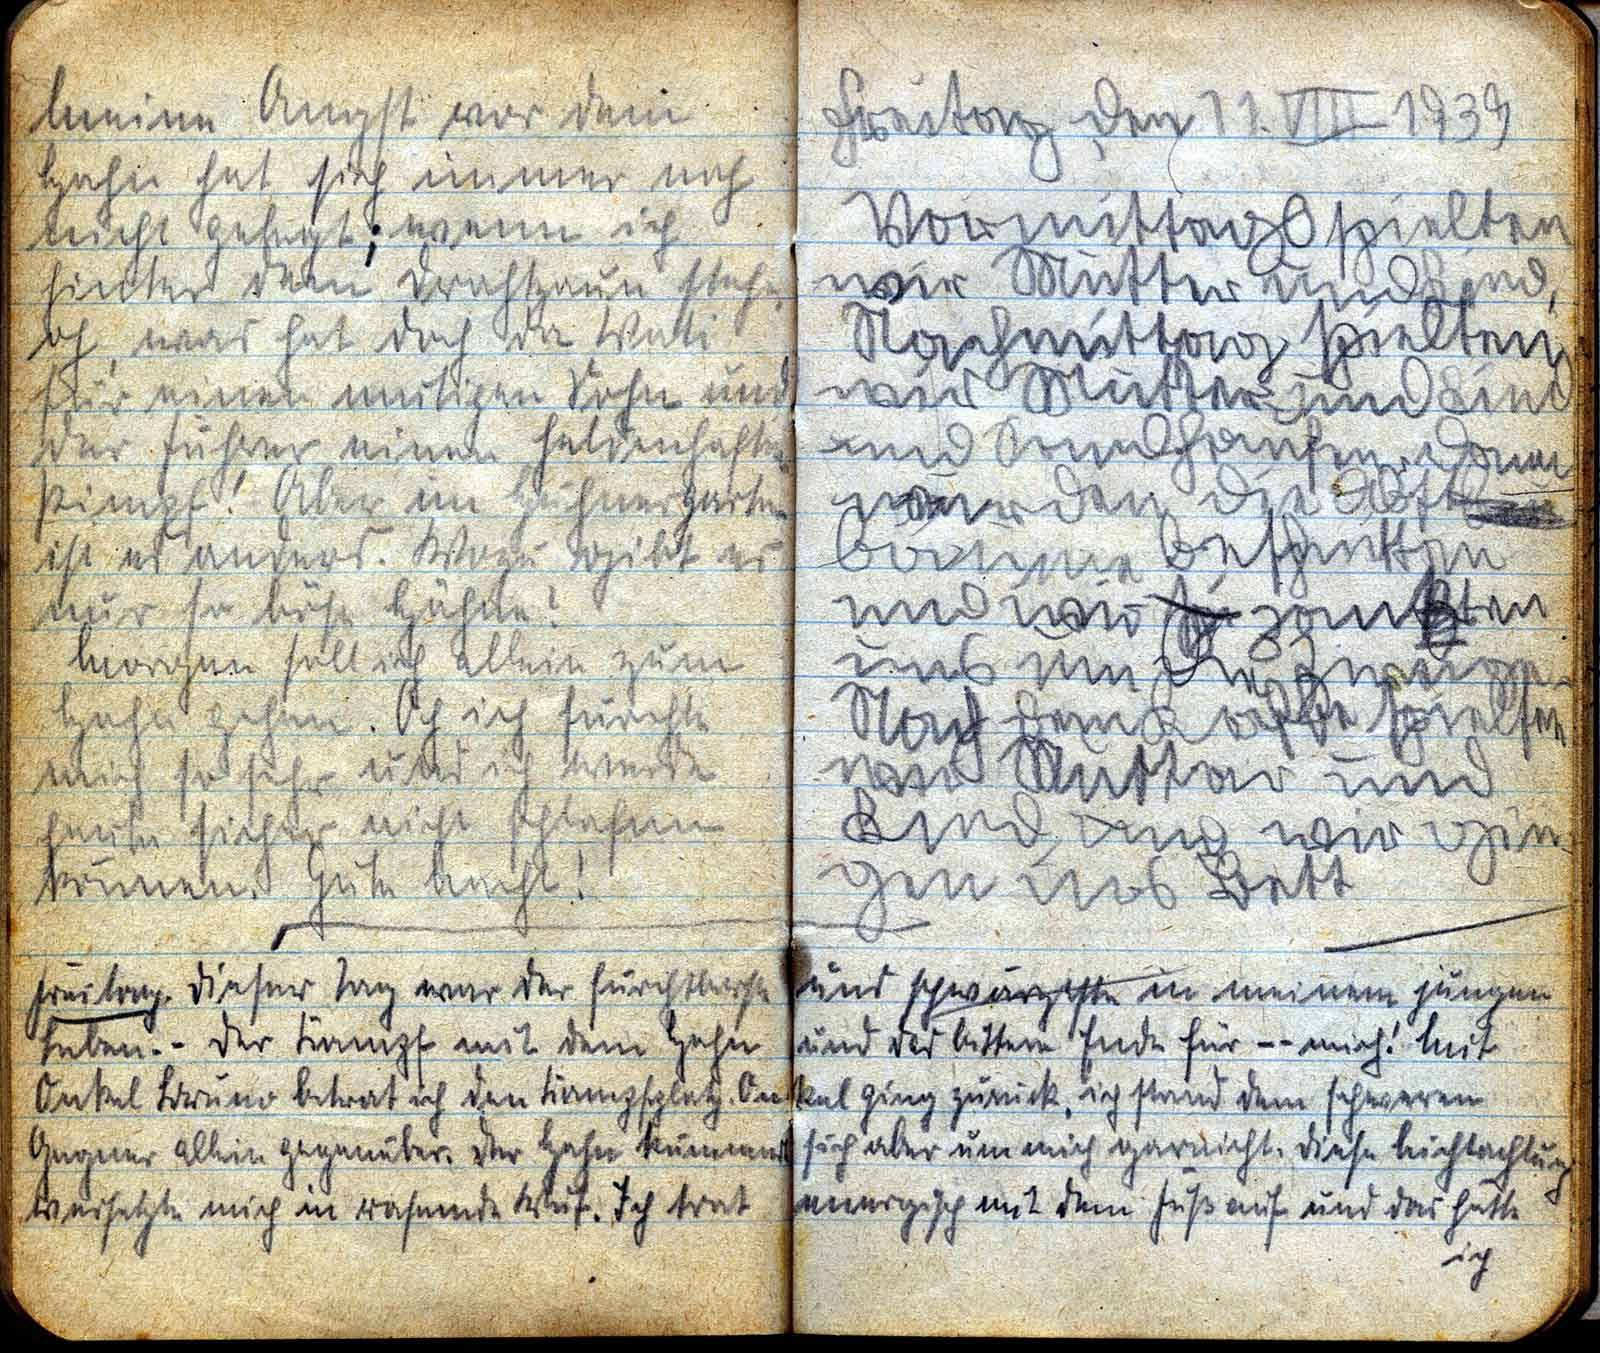 Meine Angst vor dem
Hahn hat sich immer noch
nicht gelegt; wenn ich
hinter dem Drahtzaun stehe,
oh, was hat doch da Vati
für einen mutigen Sohn und
der Führer einen heldenhaften
Pimpf! Aber im Hühnergarten
ist es anders. Wozu gibt es
nur so böse Hähne!
Morgen soll ich allein zum
Hahn gehen. Och ich fürchte
mich so sehr und ich werde
heute sicher nicht schlafen
können. Gute Nacht!
Freitag den 11. VIII 1939
Vormittags spielten
wir Mutter und Kind,
Nachmittag spielten
wir Mutter und Kind
und
wurden die
bäume
und wir zankten
uns um die Zweige.
Nach dem spielten
wir Mutter und
Kind, und wir gin
gen ins Bett
Freitag. Dieser Tag war der furchtbarste und schwärzeste in meinem jungen
Leben.- Der Kampf mit dem Hahn und das bittere Ende für -- mich! Mit
Onkel Bruno betrat ich den Kampfplatz. Onkel ging zurück, ich stand dem schweren
Gegner allein gegenüber. Der Hahn kümmert sich aber um mich garnicht. Diese Nichtachtung
versetzte mich in rasende Wut. Ich trat energisch mit dem Fuß auf und das hätte
ich